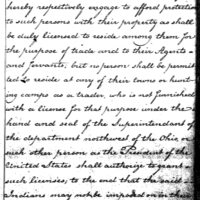 hereby respectively engage to afford protection
to such persons with their property as shall
be duly licensed to reside among them for
the purpose of trade and to their Agents
and Servants, but no person shall be permit
ted to reside at any of their towns or hunt
ing camps as a trader, who is not furnished
with a license for that purpose under the
hand and seal of the Superintendant of
the department northwest of the Ohio, or
such other person as the President of the
United States shall authorize to grant
such licenses; to the end that the said
Indians may not be imposed on in their